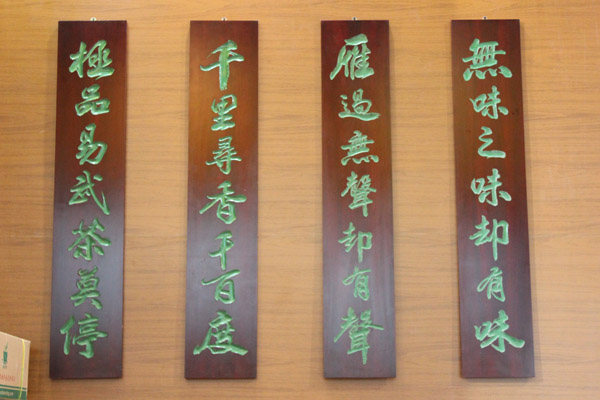 無味之味却有味
雁過無聲却有聲
千里尋香千百度
極品易武茶莫停